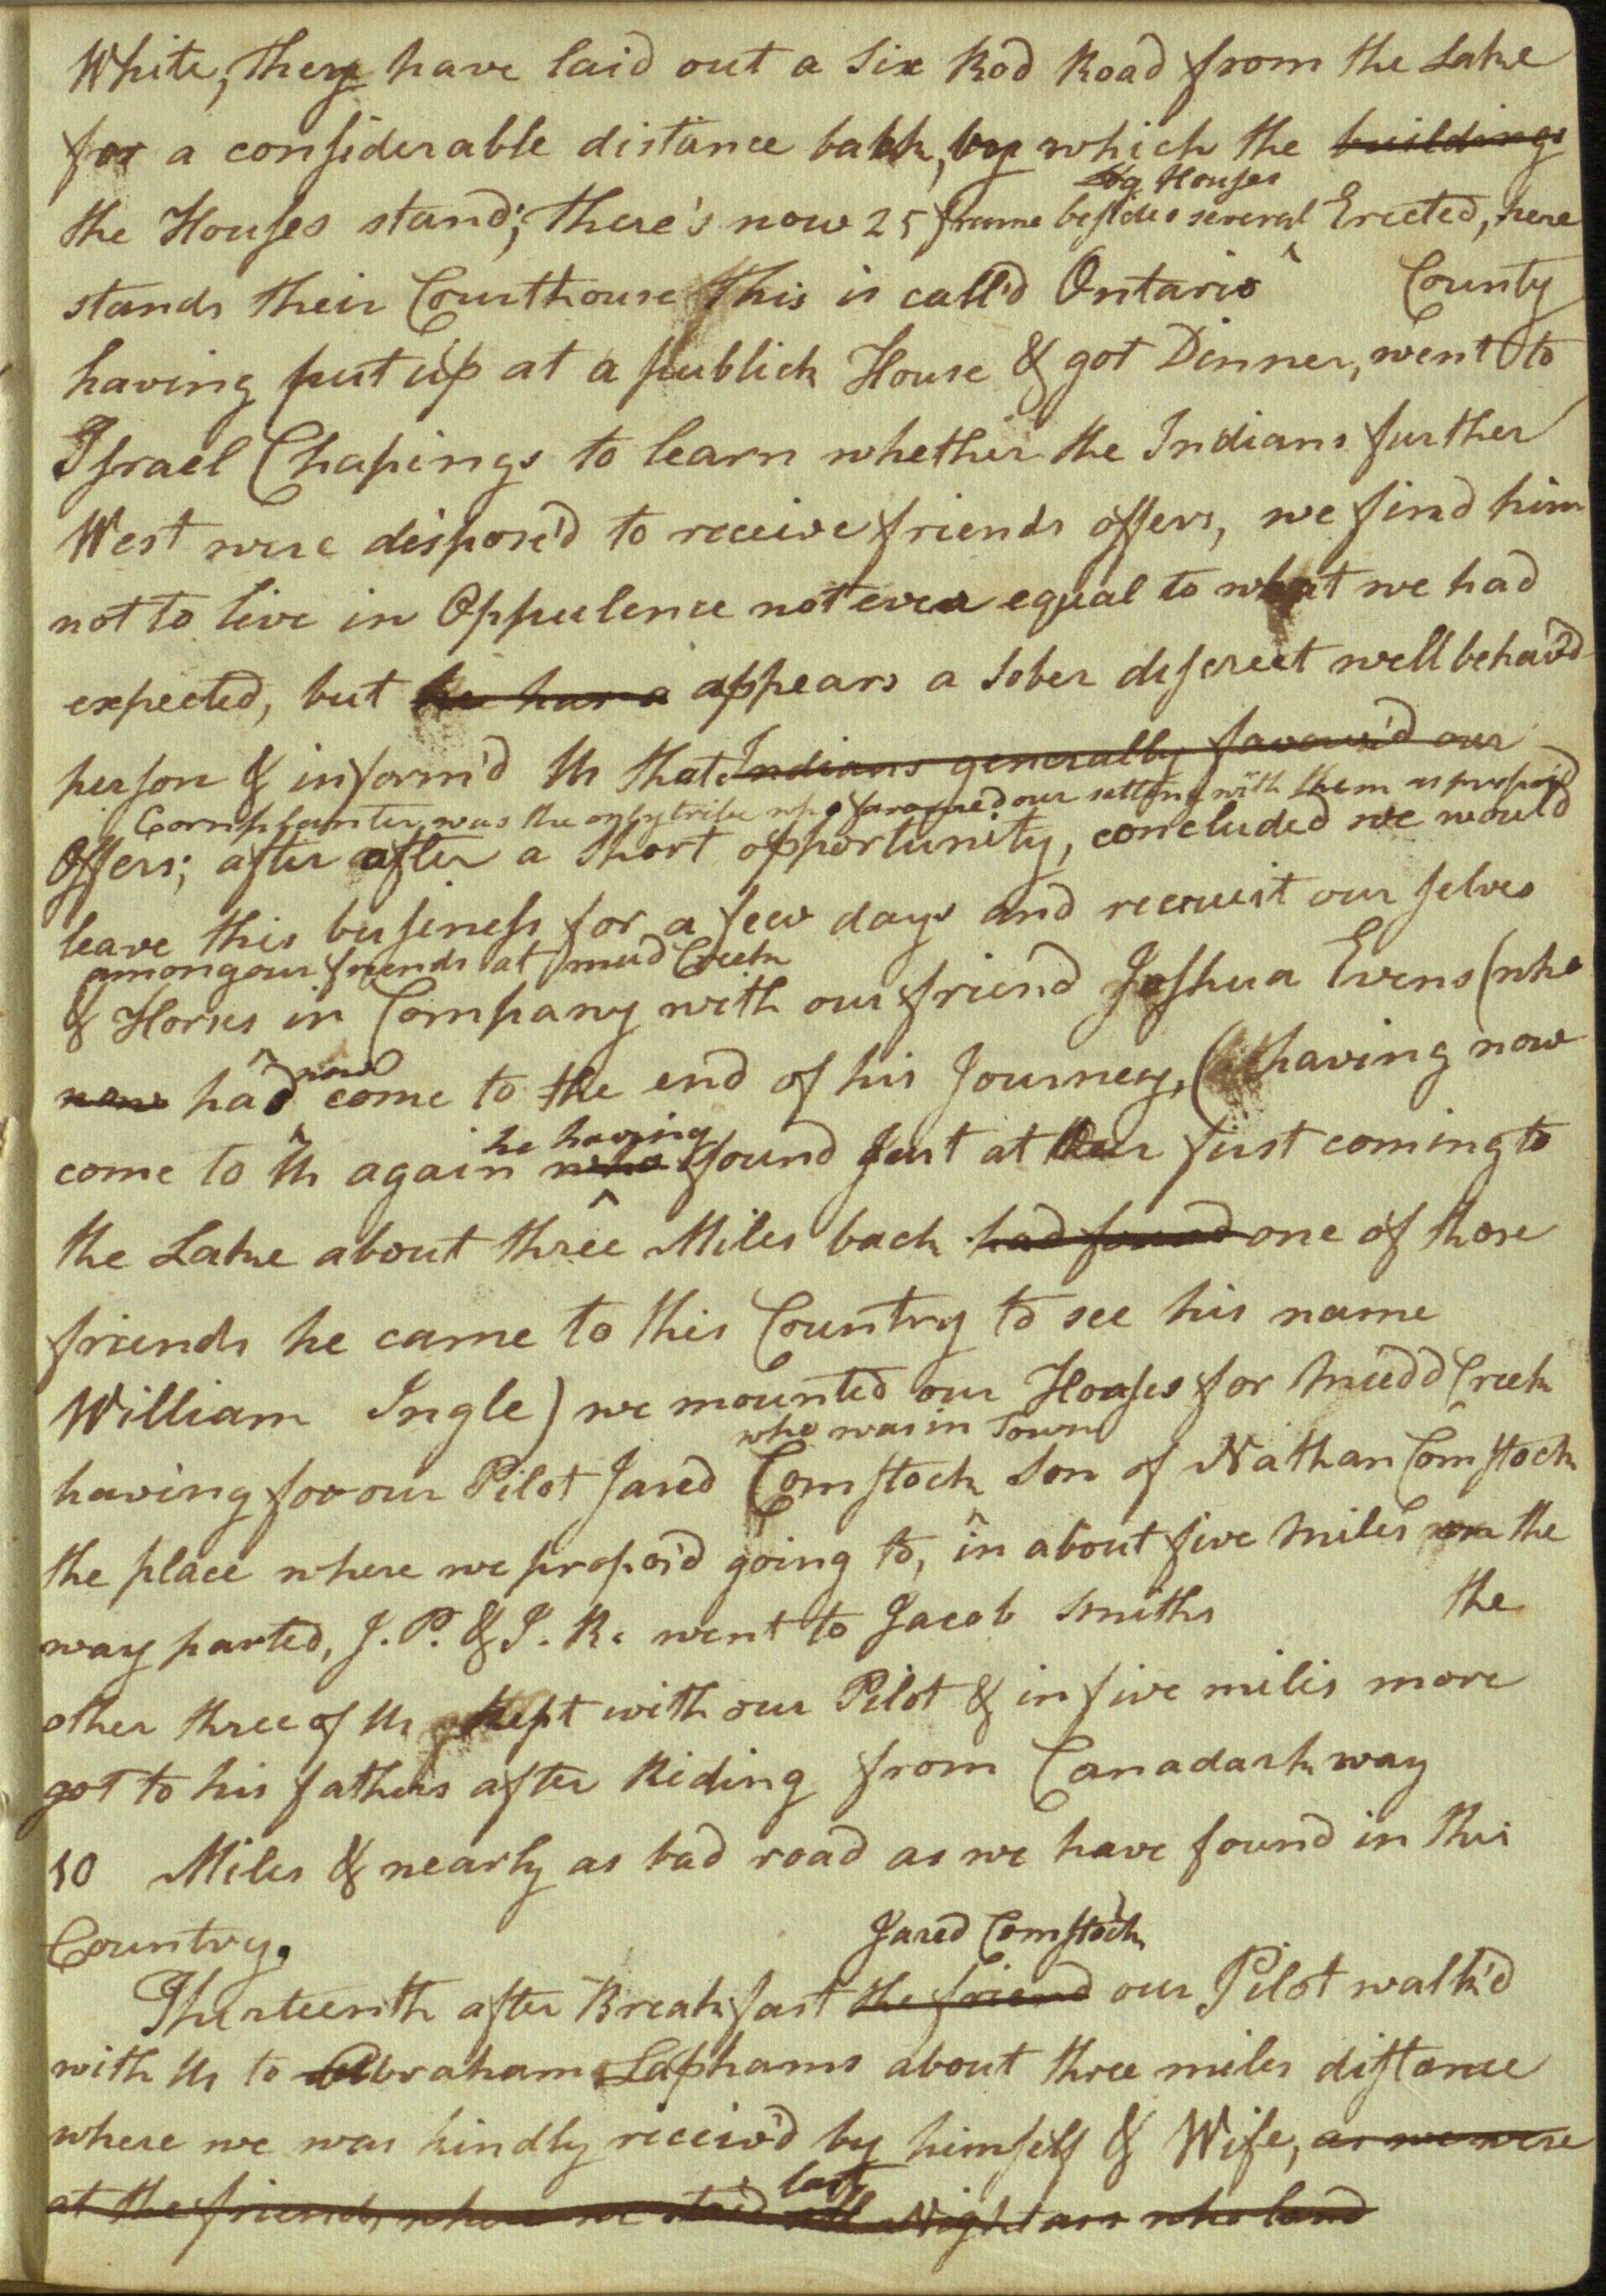 White, they have laid out a Six Rod Road from the Lake
for a considerable distance back, by which the buildings
log Houses
the Houses stand; there's now 25 frame besides several Erected, here
stands their Courthouse this is call'd Ontario County
having put up at a publick House & got Dinner, went to
Israel Chapings to learn whether the Indians further
West were dispos'd to receive friends offers, we find him
not to live in Oppulence not even equal to what we had
expected, but he has a appears a Sober discreet well behav'd
person & inform'd Us that Indians generally favour'd our
Cornplanter was the only tribe who favoured our setting with them as propos'd
Offers; after after a Short opportunity, concluded we would
leave this business for a few days and recruit our selves
among our friends at mud Creek
& Horses in Company with our friend Joshua Evens (who
now
now had come to the end of his Journey, (having now
he having
come to Us again who found Just at Our first coming to
the Lake about three Miles back had found one of those
friends he came to this Country to see his name
William Ingle) we mounted our Horses for Mudd Creek
who was in Town
having for our Pilot Jared Comstock Son of Nathan Comstock
the place where we propos'd going to, in about five Miles the
way parted, J. P. & I. R. went to Jacob Smiths the
other three of Us kept with our Pilot & in five miles more
got to his fathers after Riding from Canadarkway
10 Miles & nearly as bad road as we have found in this
Country.
Jared Comstock
Thirteenth after Breakfast the friend our Pilot walk'd
with Us to Abraham Laphams about three miles distance
where we was kindly receiv'd by himself & Wife, as we were
last
at the friends where we staid all Night are who land